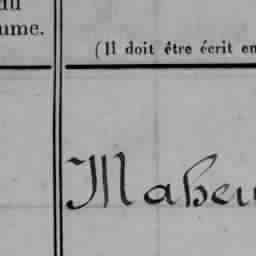 du
ume.
(Il doit être écrit en
Maheu